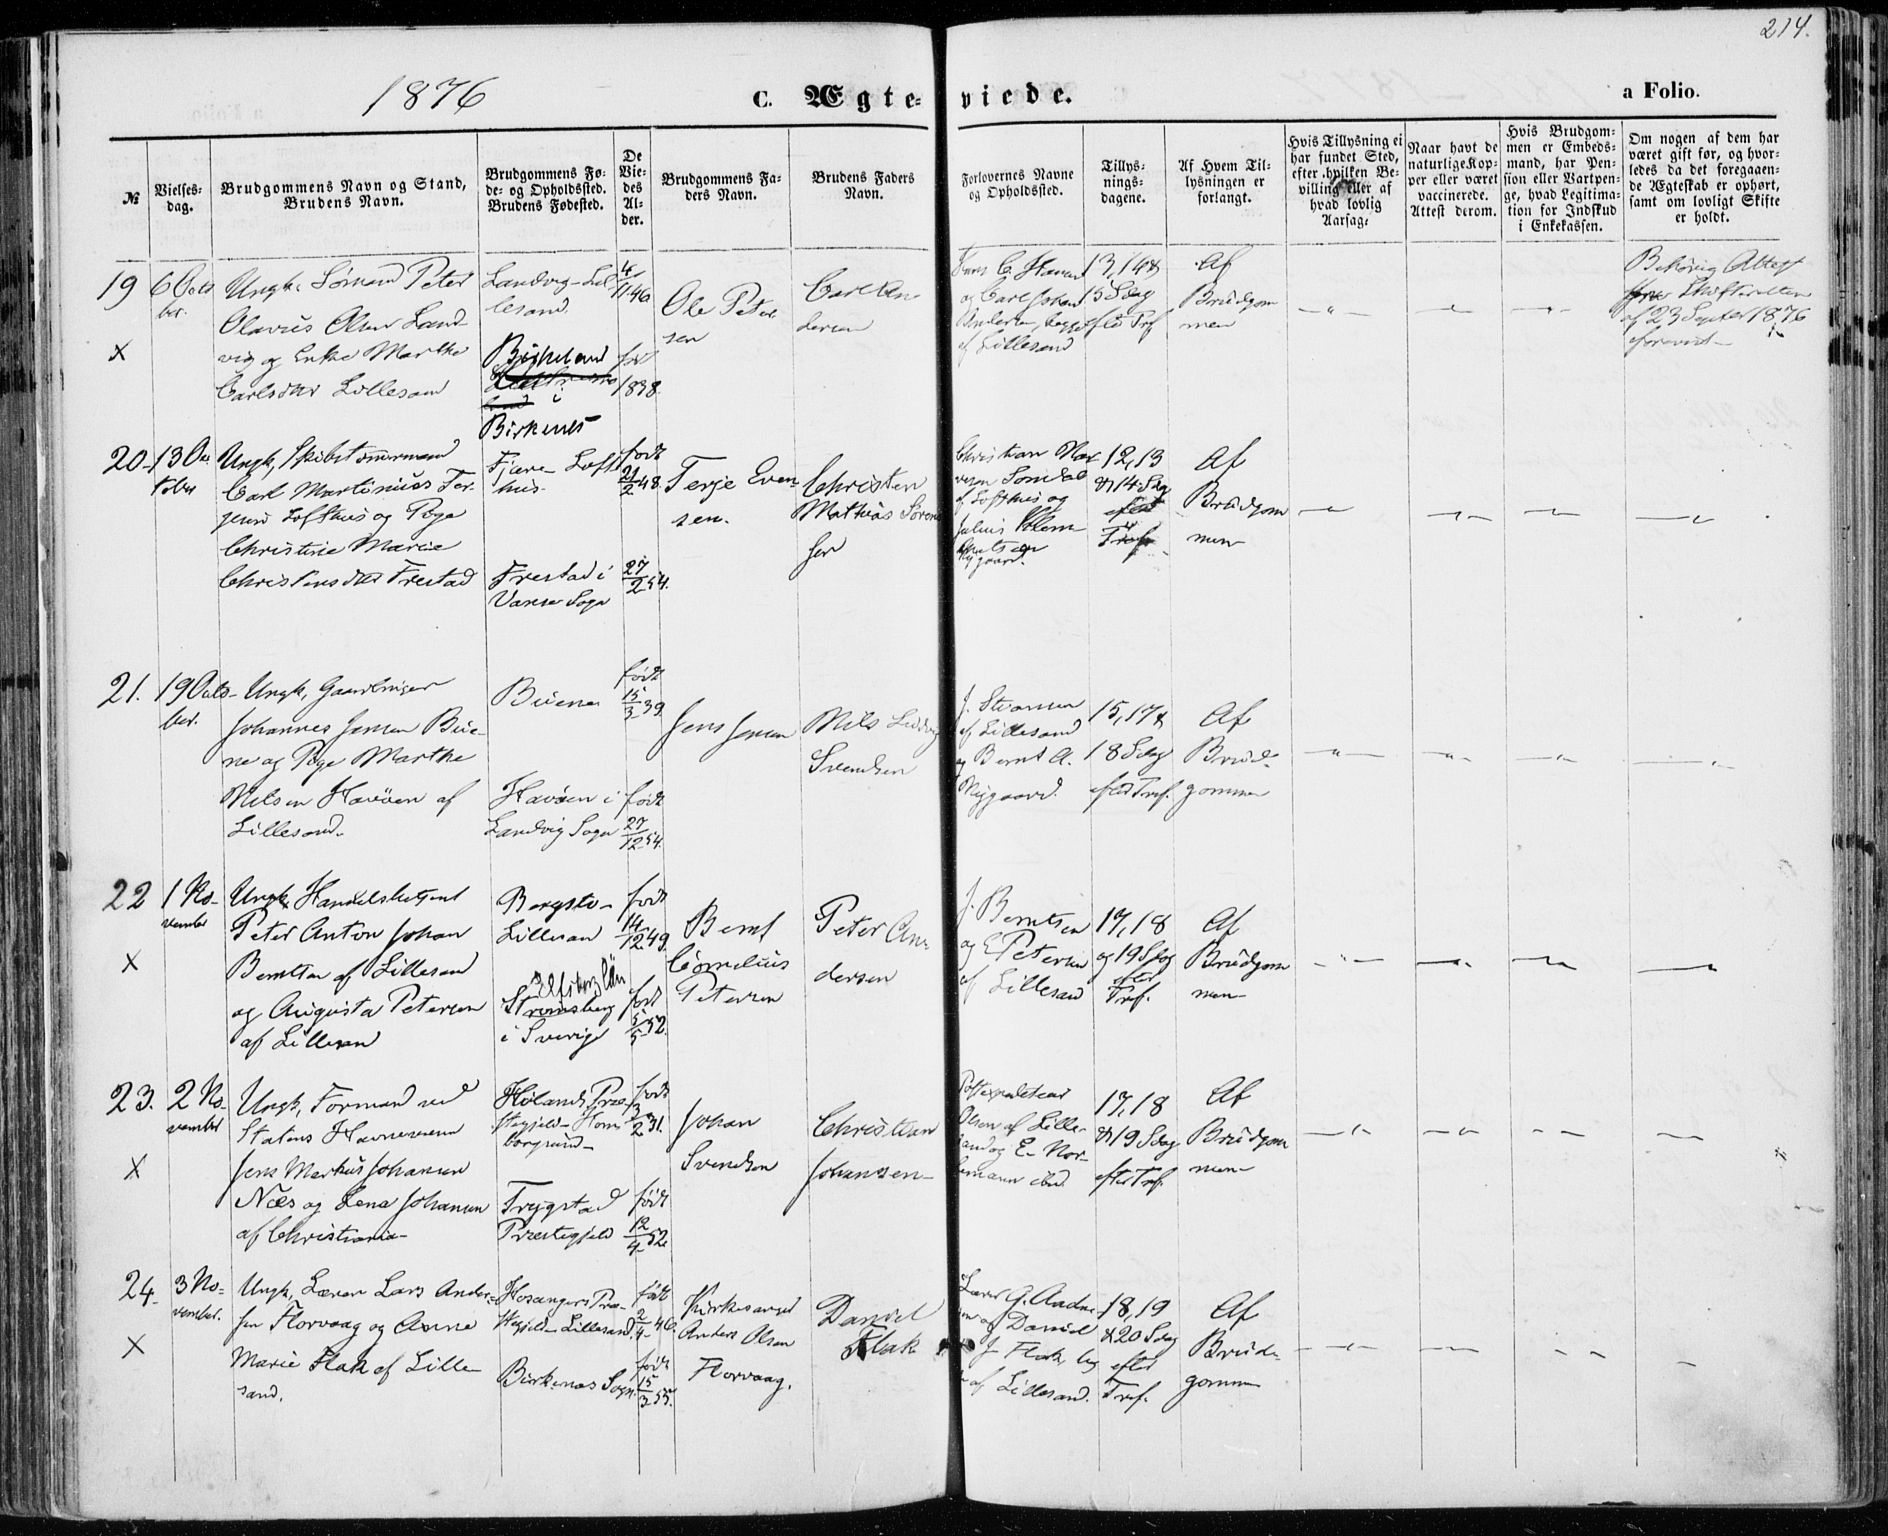 214.
1876
C. Ægteviede.
a Folio.
№
Vielsesdag.
Brudgommens Navn og Stand,
Brudens Navn.
Brudgommens Føde- og Opholdssted.
Brudens Fødested.
De Viedes Alder.
Brudgommens Faders Navn.
Brudens Faders Navn.
Forlovernes Navne og Opholdssted.
Tillysningsdagene.
Af Hvem Tillysningen er forlangt.
Hvis Tillysning ei har fundet Sted, efter hvilken Bevilling eller af hvad lovlig Aarsag.
Naar havt de naturlige Kopper eller været vaccinerede. Attest derom.
Hvis Brudgommen er Embedsmand, har Pension eller Vartpenge, hvad Legitimation for Indskud i Enkekassen.
Om nogen af dem har været gift før, og hvorledes da det foregaaende Ægteskab er ophørt, samt om lovligt Skifte er holdt.
19
6 Octo
ber.
X
Ungk. Sømand Peter
Olavus Olsen Land
vig og Enke Marthe
Carlsdtr Lillesand
Landvig - Lil
lesand
Birkeland
i
Birkenes
4/11 46
født
1838.
Ole Peter
sen
Carl An
dersen
og Carl Johan
Andersen, begge
af Lillesand
13, 14 &
15 Sdag
efter Trf
Af
Brudgom
men
Behørig Attest
fra Skifteretten
af 23 Septer 1876
forevist
20
13 Oc
tober
Ungk, Skibstømmermand
Carl Martinius Ter-
jesen Lofthus og Pige
Christine Marie
Christensdtr Frestad
Fjære - Loft
hus.
Frestad i
Vanse Sogn
født
21/2 48.
27/2 54.
Terje Even-
sen.
Christen
Mathias Sørens
sen
Christian
af Lofthus og
Julius
12, 13
& 14 Sdag
efter
Tref.
Af
Brudgom
men
21.
19 Octo-
ber.
Ungk, Gaardbruger
Johannes Jensen Bue-
ne og Pige Marthe
Nilsen Havøen af
Lillesand.
Buene
Havøen i
Landvig Sogn
født
15/3 39.
født
27/12 54.
Jens Jensen
Nils Ludvig
Svendsen
af Lillesand
og Bernt A.
Nygaard.
15, 17 &
18 Sdag
efter Tref.
Af
Brud-
gommen
22
1 No-
vember
X
Ungk, Handelsbetjent
Peter Anton Johan
Berntsen af Lillesand
og Augusta Petersen
af Lillesan
Bergsto-
Lillesan
Elfsborg Län
Strömsberg
i Sverige
født
14/12 49.
født
5/5 52.
Bernt
Cornelius
Petersen
Peter An-
dersen
J. Berntsen
og E Petersen
af Lillesand
17, 18
og 19 Sdag
efter
Tref.
Af
Brudgom
men
23.
2 No-
vember
X
Ungk, Formand ved
Statens Havnevæsen
Jens Markus Johansen
Næs og Lena Johansen
af Christiania
Hølands Præ-
stegjeld - Hom
borgsund
Trøgstad
Præstegjeld
født
3/2 31.
født
12/4 52
Johan
Svendsen
Christian
Johansen
Postexpediteur
Olsen af Lille-
sand og E. Nor-
mann ibid
17, 18
& 19 Sdag
efter Tref.
Af
Brudgom
men
24.
3 No-
vember.
X
Ungk, Lærer Lars Ander-
sen Florvaag og Anne
Marie Flak af Lille-
sand.
Hosangers Præ-
stegjeld - Lillesand.
Birkenæs Sogn.
født
2/4 46.
født
15/3 55.
Kirkesanger
Anders Olsen
Florvaag.
Daniel
Flak
Lærer G. Ander
sen og Daniel
J Flak, beg
ge af Lillesand.
18, 19
& 20 Sdag
efter
Tref.
Af
Brud-
gommen